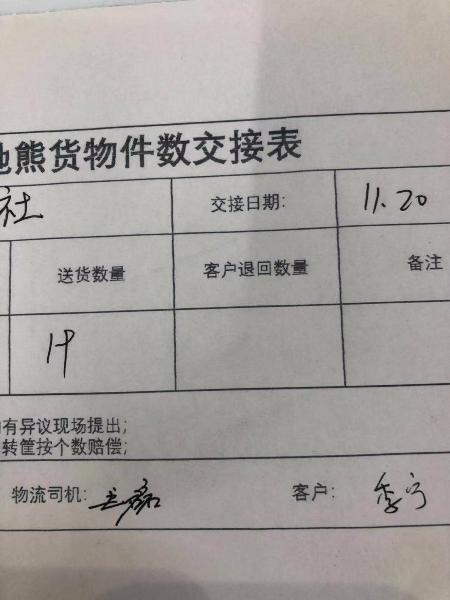 地熊货物件数交接表
社 交接日期: 11.20
送货数量 客户退回数量 备注
1件
有异议现场提出;
转筐按个数赔偿;
物流司机: 王磊 客户: 李宁